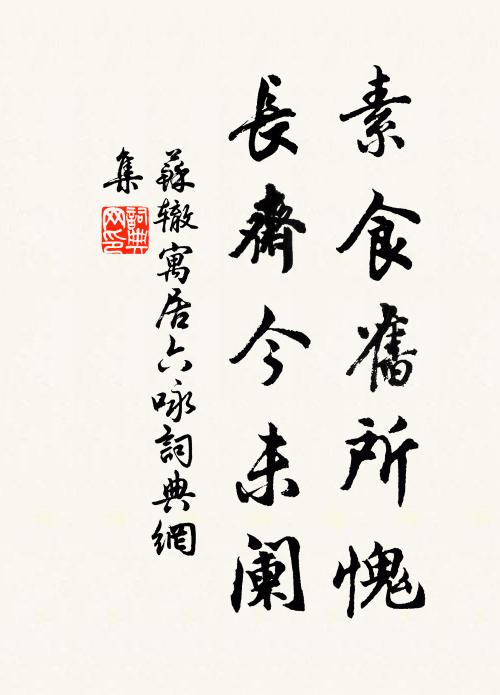 素食舊所愧
長齋今未阑
蘇辙寓居六咏詞典網
集
詞典网印